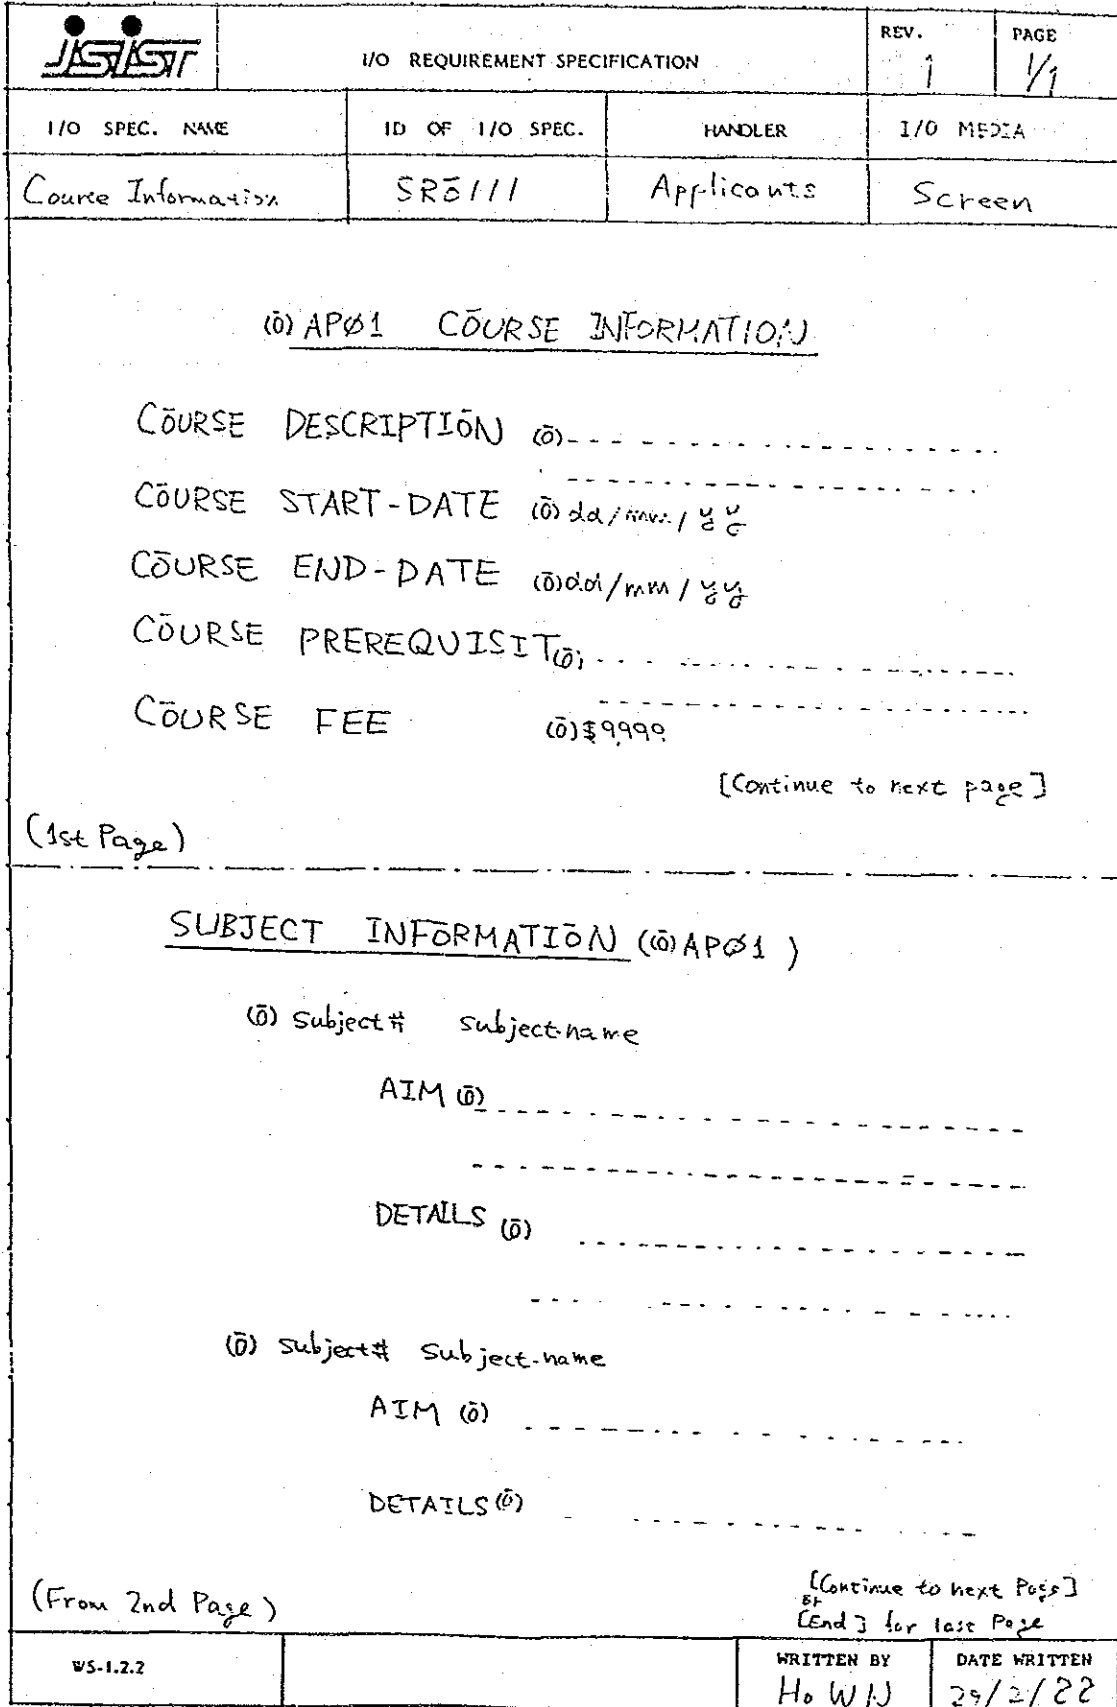 JSIST
I/O REQUIREMENT SPECIFICATION
REV.
1
PAGE
1/1
I/O SPEC. NAME
ID OF I/O SPEC.
HANDLER
I/O MEDIA
Course Information
SRŌ111
Applicants
Screen
(ō) APØ1 CŌURSE INFORMATION
CŌURSE DESCRIPTIŌN (ō)
CŌURSE START-DATE (ō) dd/mm/yy
CŌURSE END-DATE (ō) dd/mm/yy
CŌURSE PREREQUISIT (ō)
CŌURSE FEE (ō) $9999
[Continue to next page]
(1st Page)
SUBJECT INFŌRMATIŌN ((ō) APØ1 )
(ō) Subject# subject-name
AIM (ō)
DETAILS (ō)
(ō) Subject# Subject-name
AIM (ō)
DETAILS (ō)
[Continue to next Page]
or
[End] for last Page
(From 2nd Page)
WS-1.2.2
WRITTEN BY
Ho WN
DATE WRITTEN